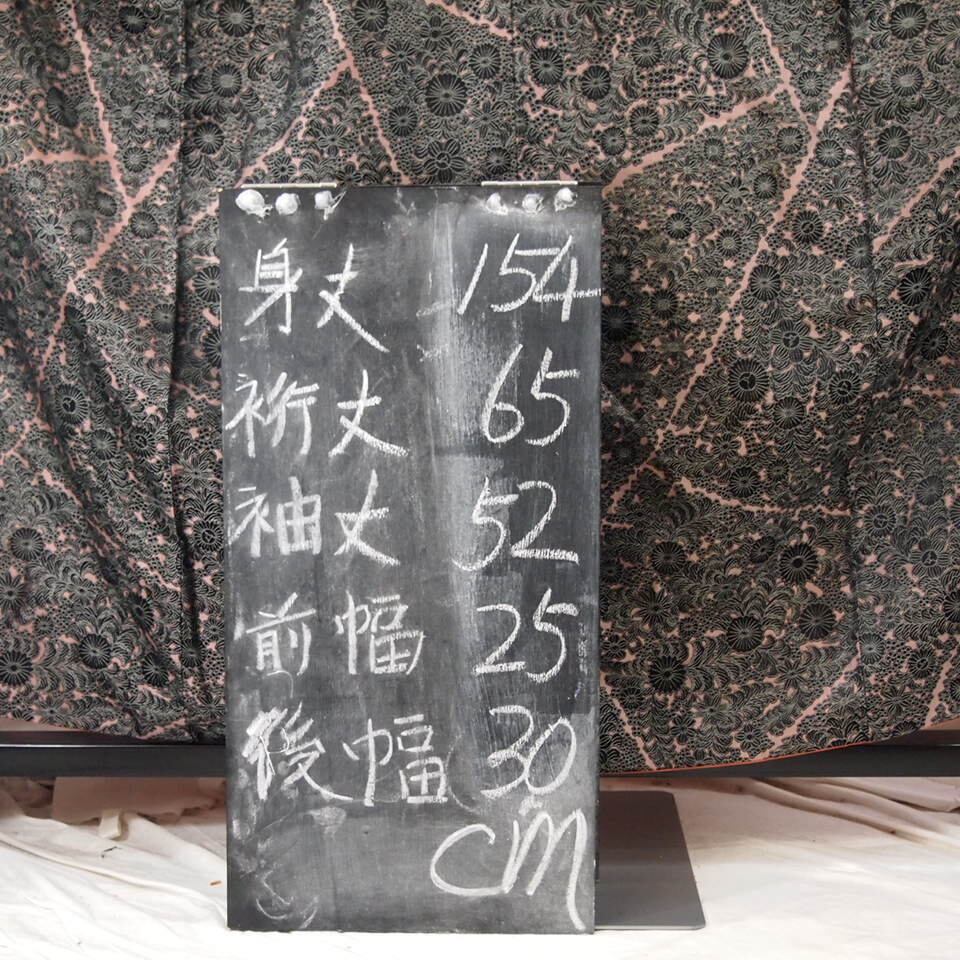 身丈 154
裄丈 65
袖丈 52
前幅 25
後幅 30
cm